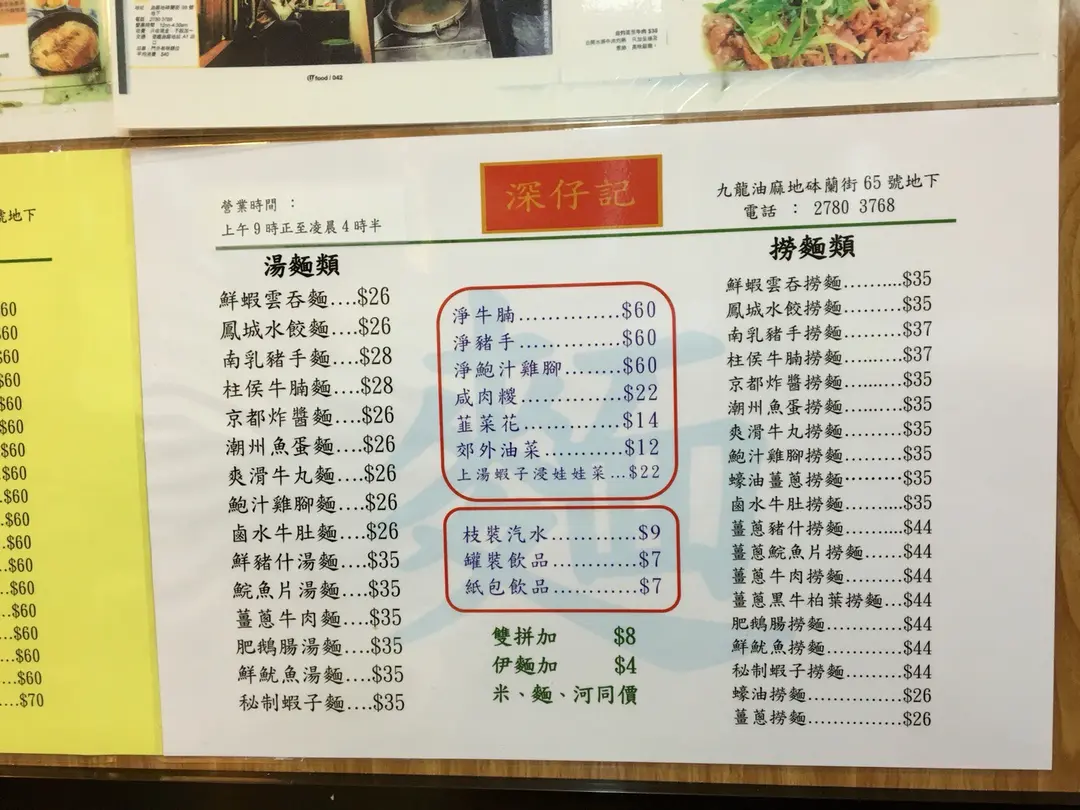 電話 2780-3768
food / 042
號地下
60
60
$60
$60
$60
$60
$60
$60
$60
$60
$60
$60
$60
$60
$60
$60
$60
$70
營業時間 :
上午9時正至凌晨4時半
深仔記
九龍油麻地砵蘭街 65 號地下
電話 : 2780 3768
湯麵類
鮮蝦雲吞麵....$26
鳳城水餃麵....$26
南乳豬手麵....$28
柱侯牛腩麵....$28
京都炸醬麵....$26
潮州魚蛋麵....$26
爽滑牛丸麵....$26
鮑汁雞腳麵....$26
鹵水牛肚麵....$26
鮮豬什湯麵....$35
鯇魚片湯麵....$35
薑蔥牛肉麵....$35
肥鵝腸湯麵....$35
鮮魷魚湯麵....$35
秘制蝦子麵....$35
淨牛腩..............$60
淨豬手..............$60
淨鮑汁雞腳........$60
咸肉糭..............$22
韮菜花.............$14
郊外油菜...........$12
上湯蝦子浸娃娃菜...$22
枝裝汽水............$9
罐裝飲品............$7
紙包飲品............$7
雙拼加 $8
伊麵加 $4
米、麵、河同價
麵
撈麵類
鮮蝦雲吞撈麵.........$35
鳳城水餃撈麵.........$35
南乳豬手撈麵.........$37
柱侯牛腩撈麵.........$37
京都炸醬撈麵.........$35
潮州魚蛋撈麵.........$35
爽滑牛丸撈麵.........$35
鮑汁雞腳撈麵.........$35
蠔油薑蔥撈麵.........$35
鹵水牛肚撈麵.........$35
薑蔥豬什撈麵.........$44
薑蔥鯇魚片撈麵......$44
薑蔥牛肉撈麵.........$44
薑蔥黑牛柏葉撈麵...$44
肥鵝腸撈麵............$44
鮮魷魚撈麵............$44
秘制蝦子撈麵.........$44
蠔油撈麵...............$26
薑蔥撈麵...............$26